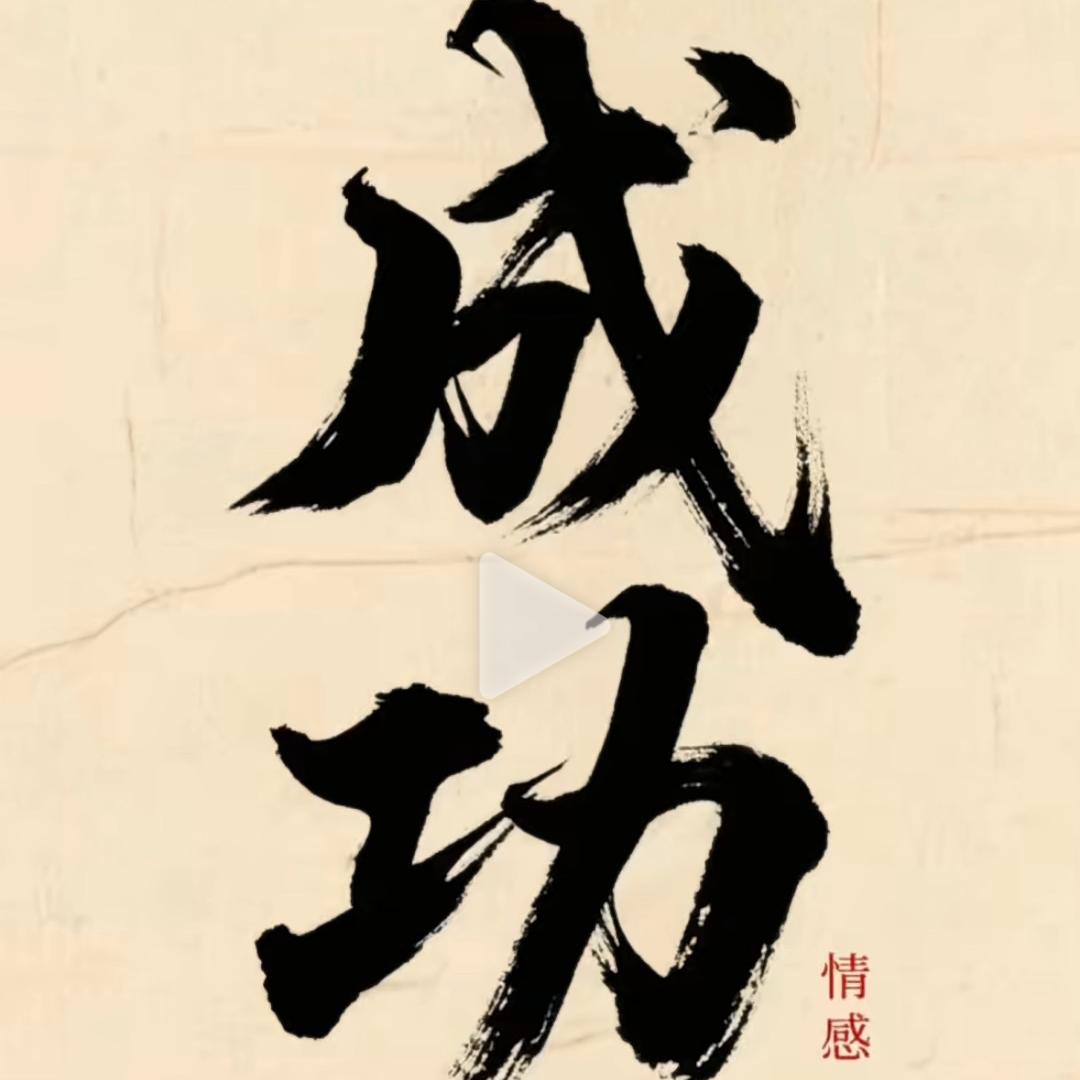 成功
情感